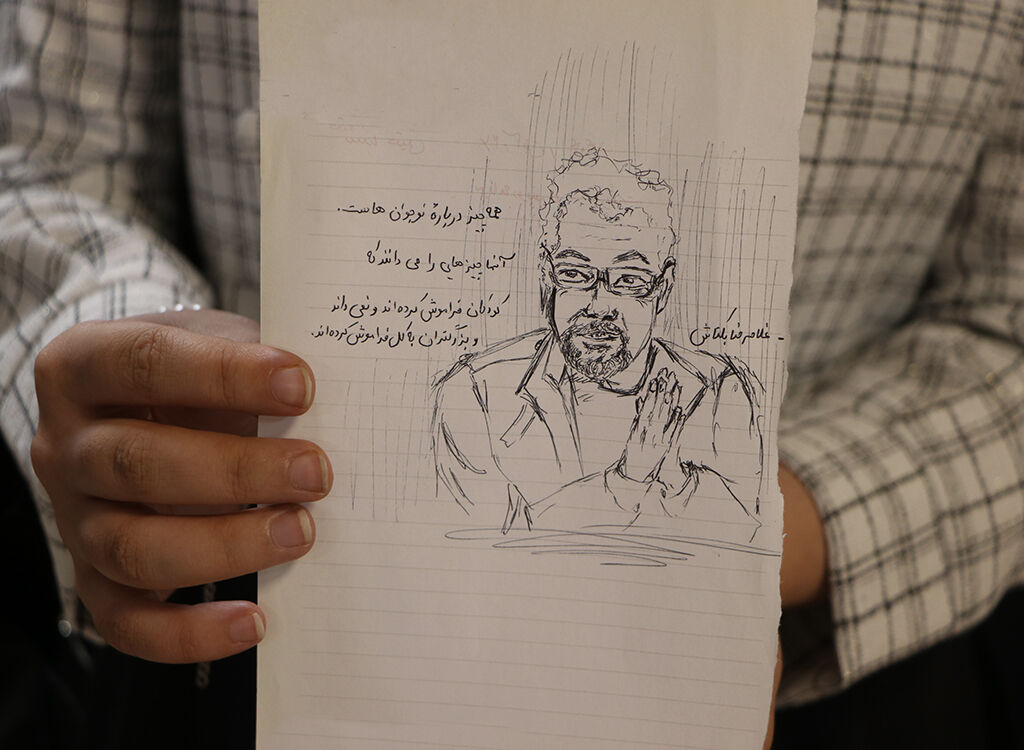 همه چیز دربارهٔ نوجوان هاست.
آنها چیزهایی را می دانند که
کودکان فراموش کرده اند و نمی داند
و بزرگتران به کل فراموش کرده اند.
- غلامرضا بکتاش